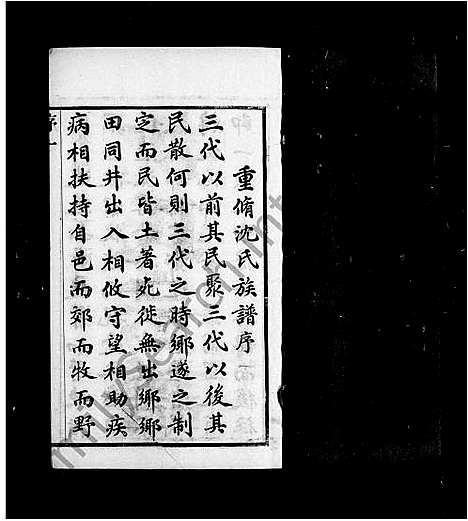 重脩沈氏族譜序
三代以前其民聚三代以後其
民散何則三代之時鄉遂之制
定而民皆土著死徙無出鄉鄉
田同井出入相攸守望相助疾
病相扶持自邑而郊而牧而野
序一